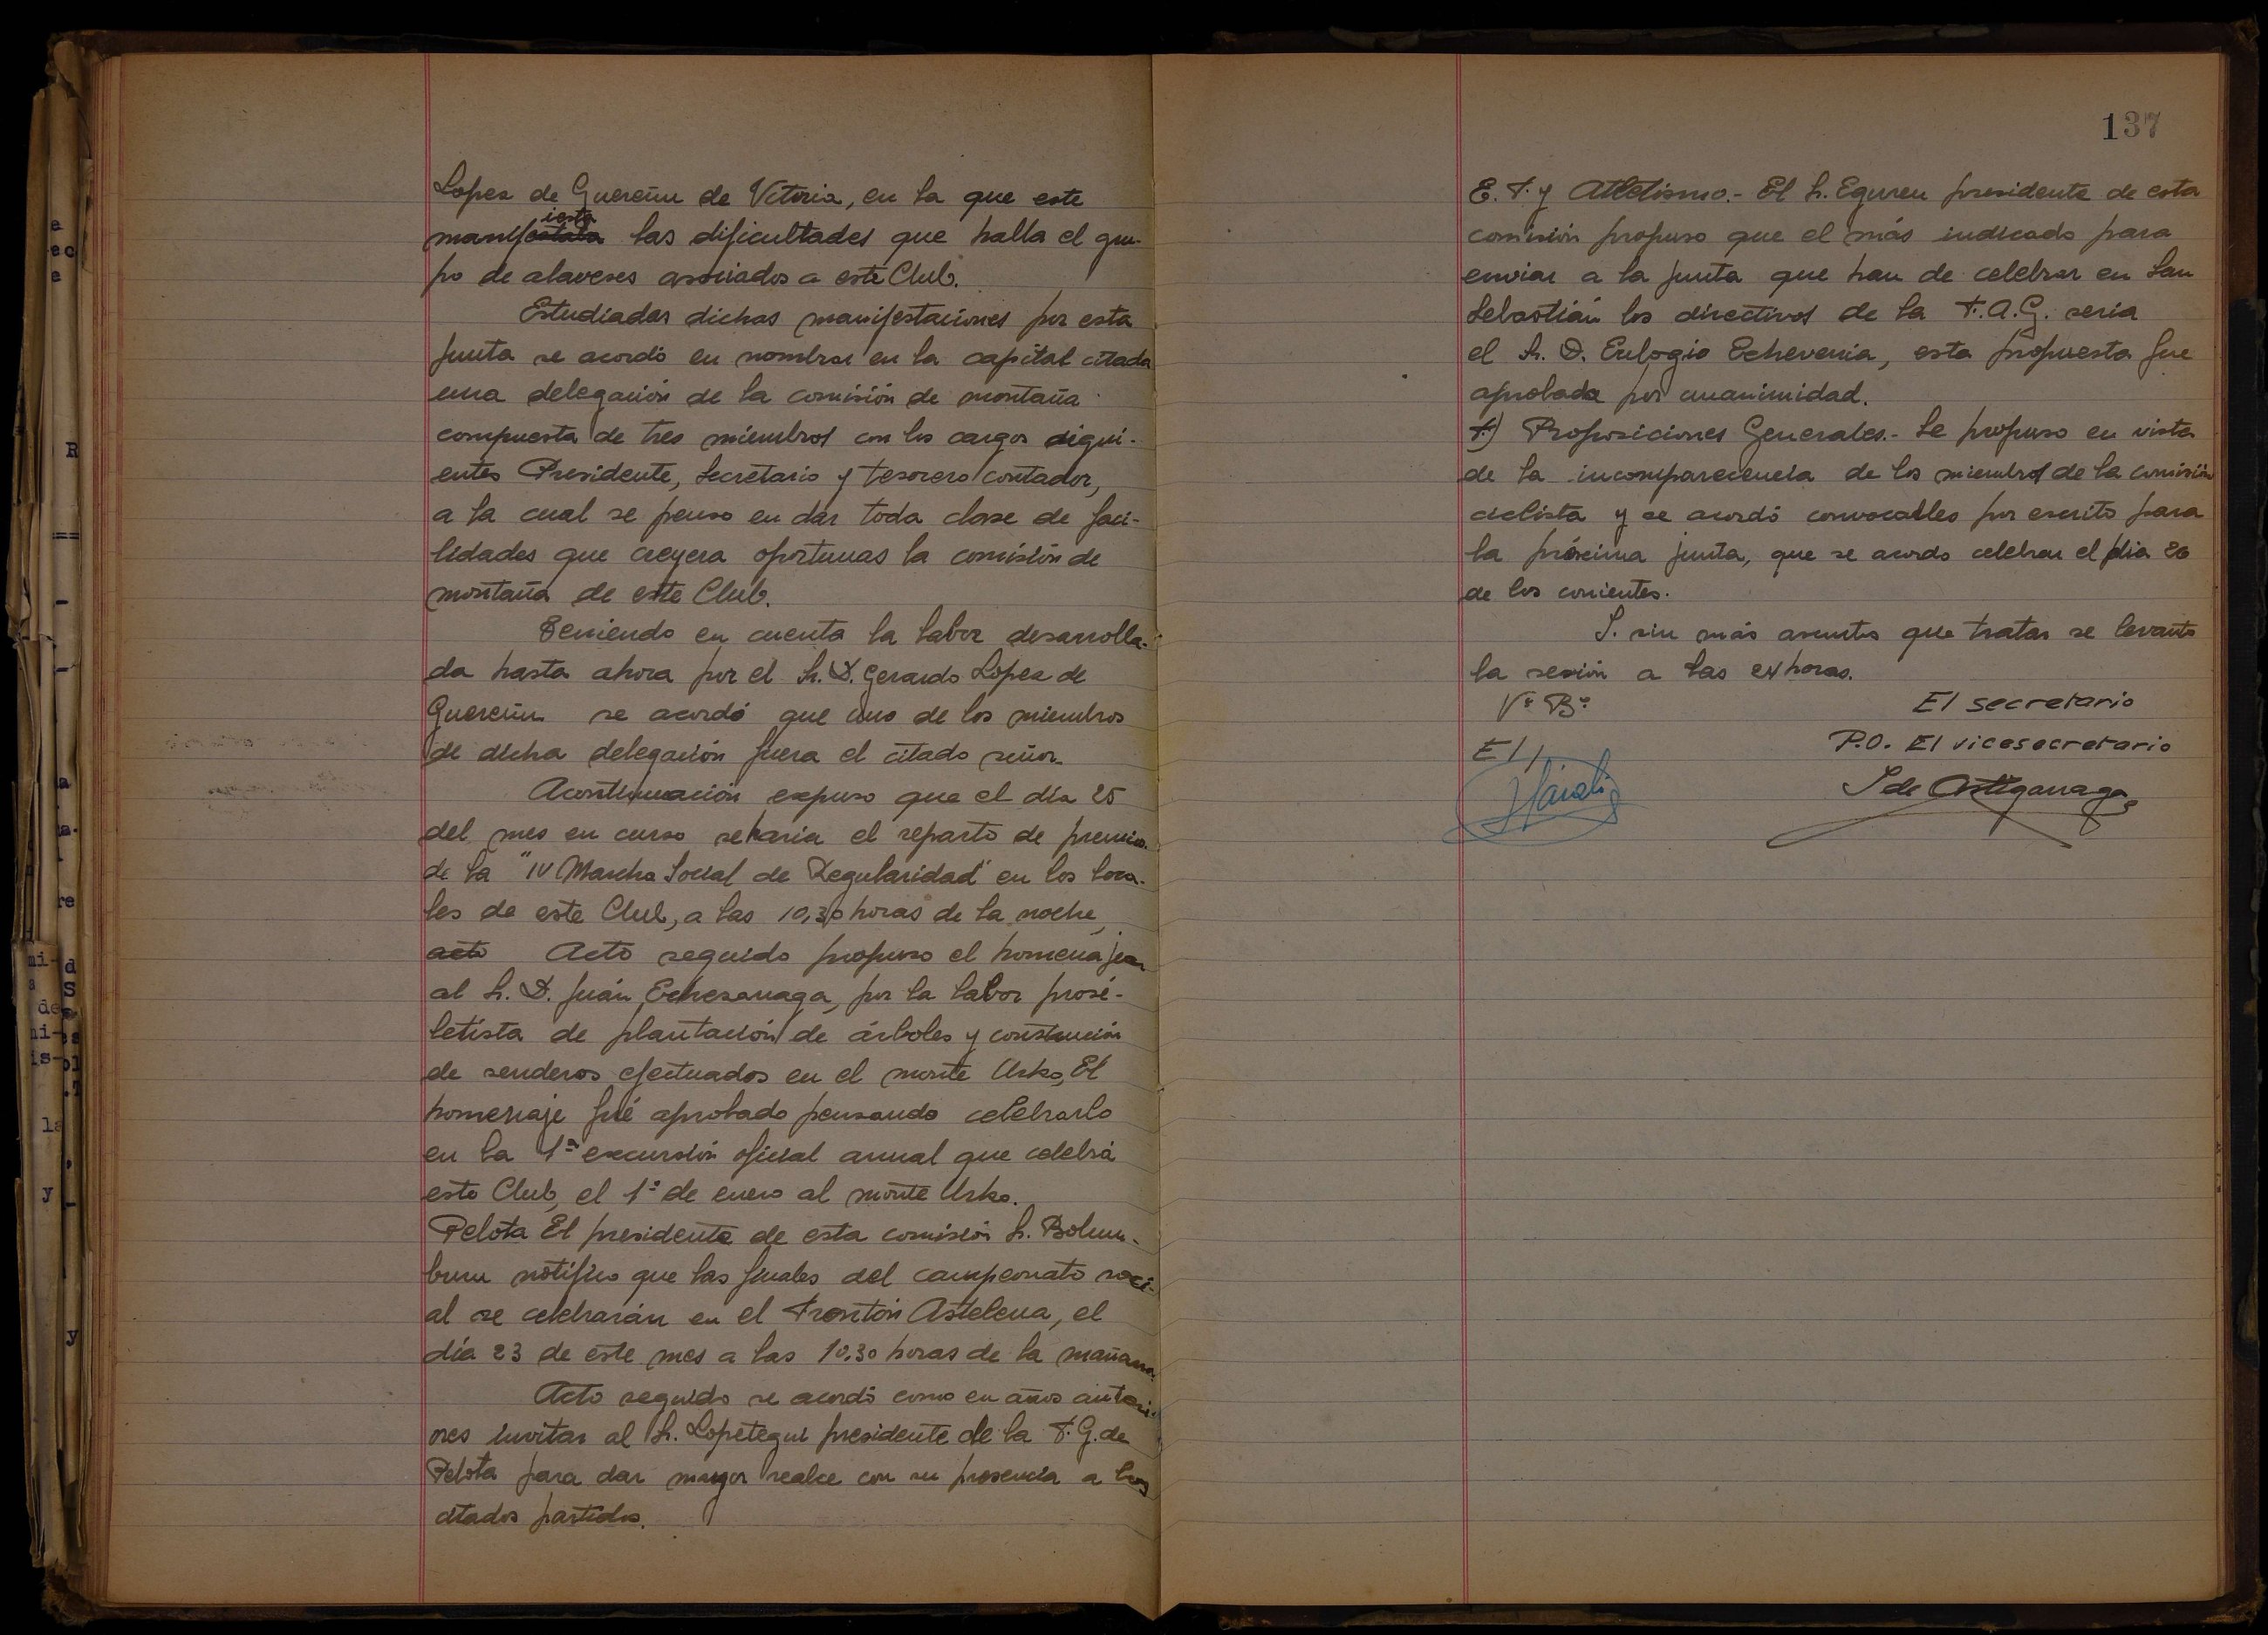 Lopez de Guereñu de Vitoria, en la que este
manifiesta las dificultades que halla el gru-
po de alaveses asociados a este Club.
Estudiadas dichas manifestaciones por esta
Junta se acordó en nombrar en la capital citada
una delegación de la comisión de montaña
compuesta de tres miembros con los cargos sigui-
entes Presidente, Secretario y tesorero contador,
a la cual se penso en dar toda clase de faci-
lidades que creyera oportunas la comisión de
montaña de este Club.
Teniendo en cuenta la labor desarrolla-
da hasta ahora por el Sr. D. Gerardo Lopez de
Guereñu se acordó que uno de los miembros
de dicha delegación fuera el citado señor.
Acontinuación expuso que el día 25
del mes en curso seharia el reparto de premios
de la "IV Marcha Social de Regularidad" en los loca-
les de este Club, a las 10,30 horas de la noche,
acto Acto seguido propuso el homenajear
al Sr. D. Juán Echezarraga, por la labor prosé-
letista de plantación de árboles y construción
de senderos efectuados en el monte Urko, El
homenaje fué aprobado pensando celebrarlo
en la 1ª excursión oficial anual que celebrá
este Club, el 1º de enero al monte Urko.
Pelota El presidente de esta comisión Sr. Bolum-
buru notifico que las finales del campeonato soci-
al se celebrarán en el Frontón Astelena, el
día 23 de este mes a las 10.30 horas de la mañana.
Acto seguido se acordó como en años anteri-
ores invitar al Sr. Lopetegui presidente de la F. G. de
Pelota para dar mayor realce con su presencia a los
citados partidos.
137
E. F. y Atletismo.- El Sr. Eguren presidente de esta
comisión propuso que el más indicado para
enviar a la junta que han de celebrar en San
Sebastián los directivos de la F. A. G. seria
el Sr. D. Eulogio Echeverria, esta propuesta fue
aprobada por unanimidad.
F.) Proposiciones Generales.- Se propuso en vista
de la incomparecencia de los miembros de la comisión
ciclista y se acordó convocarlles por escrito para
la próxima junta, que se acordo celebrar el dia 20
de los corrientes.
I. sin más asuntos que tratar se levanto
la sesión a las 24 horas.
Vº Bº
El secretario
El
P.O. El vicesecretario
I de Astigarraga